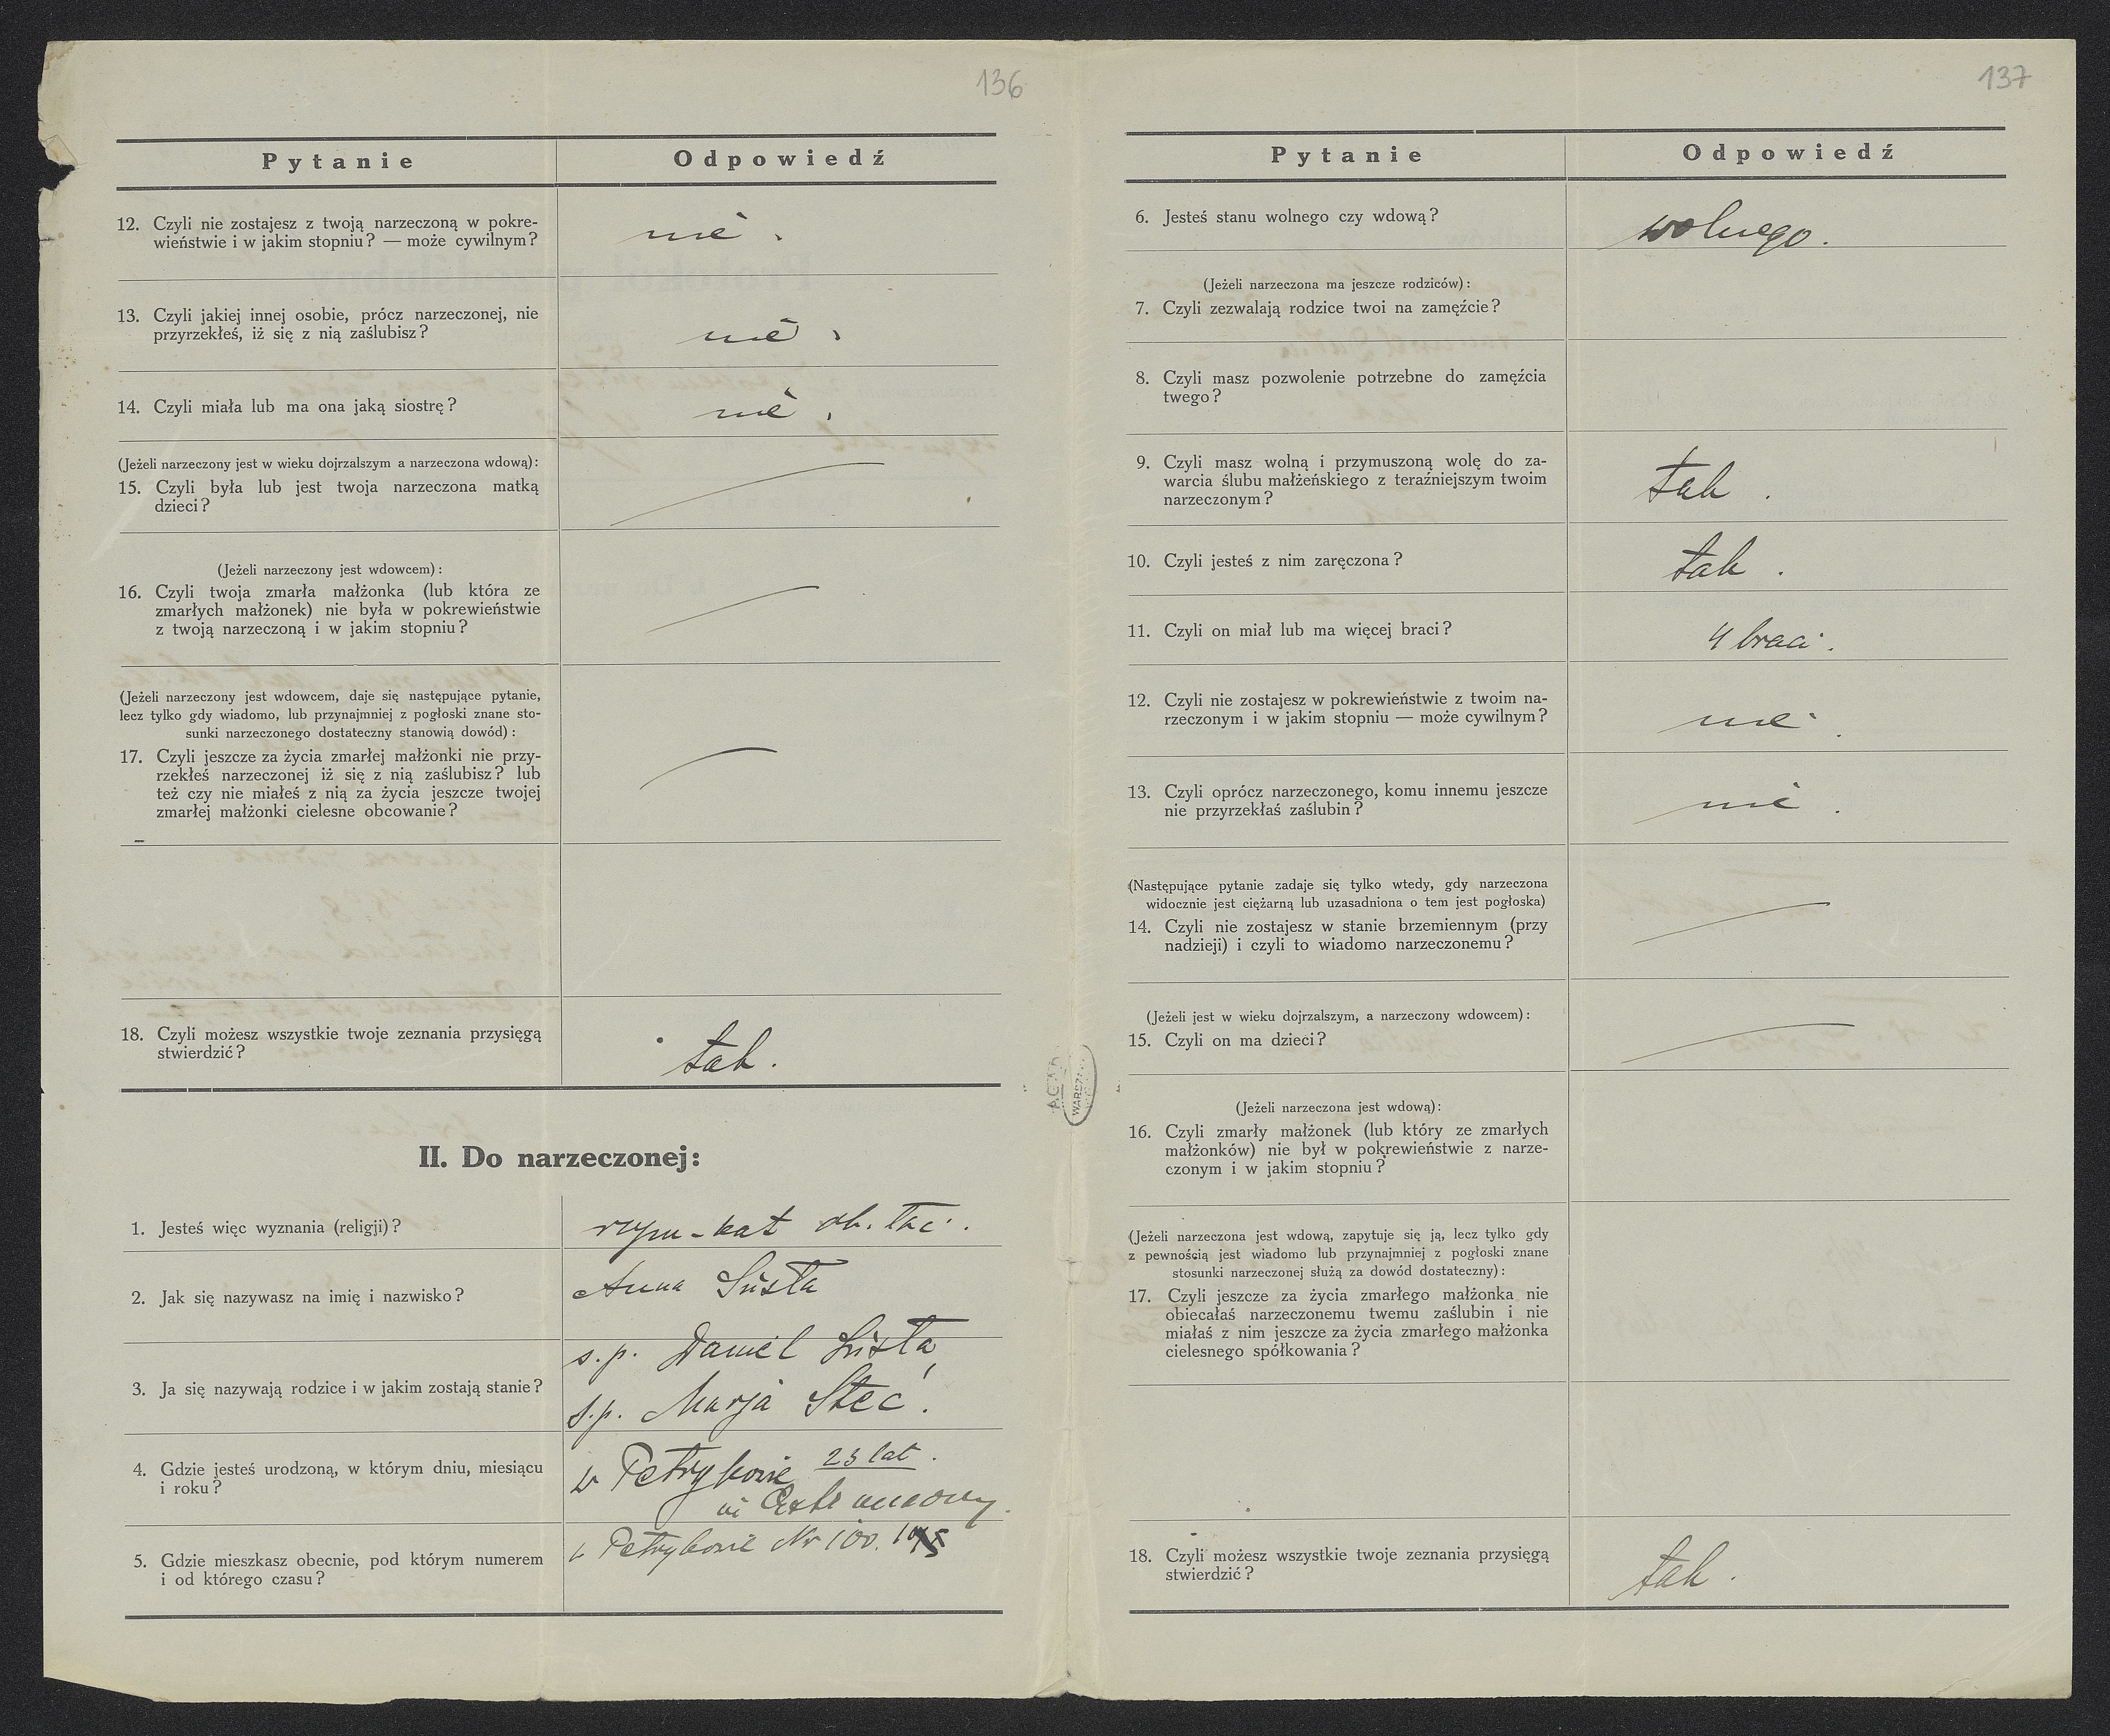 136
Pytanie
Odpowiedź
12. Czyli nie zostajesz z twoją narzeczoną w pokre-
wieństwie i w jakim stopniu? — może cywilnym?
nie.
13. Czyli jakiej innej osobie, prócz narzeczonej, nie
przyrzekłeś, iż się z nią zaślubisz?
nie.
14. Czyli miała lub ma ona jaką siostrę?
nie.
(Jeżeli narzeczony jest w wieku dojrzalszym a narzeczona wdową):
15. Czyli była lub jest twoja narzeczona matką
dzieci?
(Jeżeli narzeczony jest wdowcem):
16. Czyli twoja zmarła małżonka (lub która ze
zmarłych małżonek) nie była w pokrewieństwie
z twoją narzeczoną i w jakim stopniu?
(Jeżeli narzeczony jest wdowcem, daje się następujące pytanie,
lecz tylko gdy wiadomo, lub przynajmniej z pogłoski znane sto-
sunki narzeczonego dostateczny stanowią dowód):
17. Czyli jeszcze za życia zmarłej małżonki nie przy-
rzekłeś narzeczonej iż się z nią zaślubisz? lub
też czy nie miałeś z nią za życia jeszcze twojej
zmarłej małżonki cielesne obcowanie?
18. Czyli możesz wszystkie twoje zeznania przysięgą
stwierdzić?
tak.
II. Do narzeczonej:
1. Jesteś więc wyznania (religji)?
rzym-kat ob. łac.
2. Jak się nazywasz na imię i nazwisko?
Anna Susła
3. Ja się nazywają rodzice i w jakim zostają stanie?
s.p. Daniel Susła,
s.p. Marja Steć.
4. Gdzie jesteś urodzoną, w którym dniu, miesiącu
i roku?
w Petrykowie 23 lat.
5. Gdzie mieszkasz obecnie, pod którym numerem
i od którego czasu?
w Petrykowie Nr 100.
137
Pytanie
Odpowiedź
6. Jesteś stanu wolnego czy wdową?
wolnego.
(Jeżeli narzeczona ma jeszcze rodziców):
7. Czyli zezwalają rodzice twoi na zamęźcie?
8. Czyli masz pozwolenie potrzebne do zamęźcia
twego?
9. Czyli masz wolną i przymuszoną wolę do za-
warcia ślubu małżeńskiego z teraźniejszym twoim
narzeczonym?
tak.
10. Czyli jesteś z nim zaręczona?
tak.
11. Czyli on miał lub ma więcej braci?
4 braci.
12. Czyli nie zostajesz w pokrewieństwie z twoim na-
rzeczonym i w jakim stopniu — może cywilnym?
nie.
13. Czyli oprócz narzeczonego, komu innemu jeszcze
nie przyrzekłaś zaślubin?
nie.
(Następujące pytanie zadaje się tylko wtedy, gdy narzeczona
widocznie jest ciężarną lub uzasadniona o tem jest pogłoska)
14. Czyli nie zostajesz w stanie brzemiennym (przy
nadzieji) i czyli to wiadomo narzeczonemu?
(Jeżeli jest w wieku dojrzalszym, a narzeczony wdowcem):
15. Czyli on ma dzieci?
(Jeżeli narzeczona jest wdową):
16. Czyli zmarły małżonek (lub który ze zmarłych
małżonków) nie był w pokrewieństwie z narze-
czonym i w jakim stopniu?
(Jeżeli narzeczona jest wdową, zapytuje się ją, lecz tylko gdy
z pewnością jest wiadomo lub przynajmniej z pogłoski znane
stosunki narzeczonej służą za dowód dostateczny):
17. Czyli jeszcze za życia zmarłego małżonka nie
obiecałaś narzeczonemu twemu zaślubin i nie
miałaś z nim jeszcze za życia zmarłego małżonka
cielesnego spółkowania?
18. Czyli możesz wszystkie twoje zeznania przysięgą
stwierdzić?
tak.